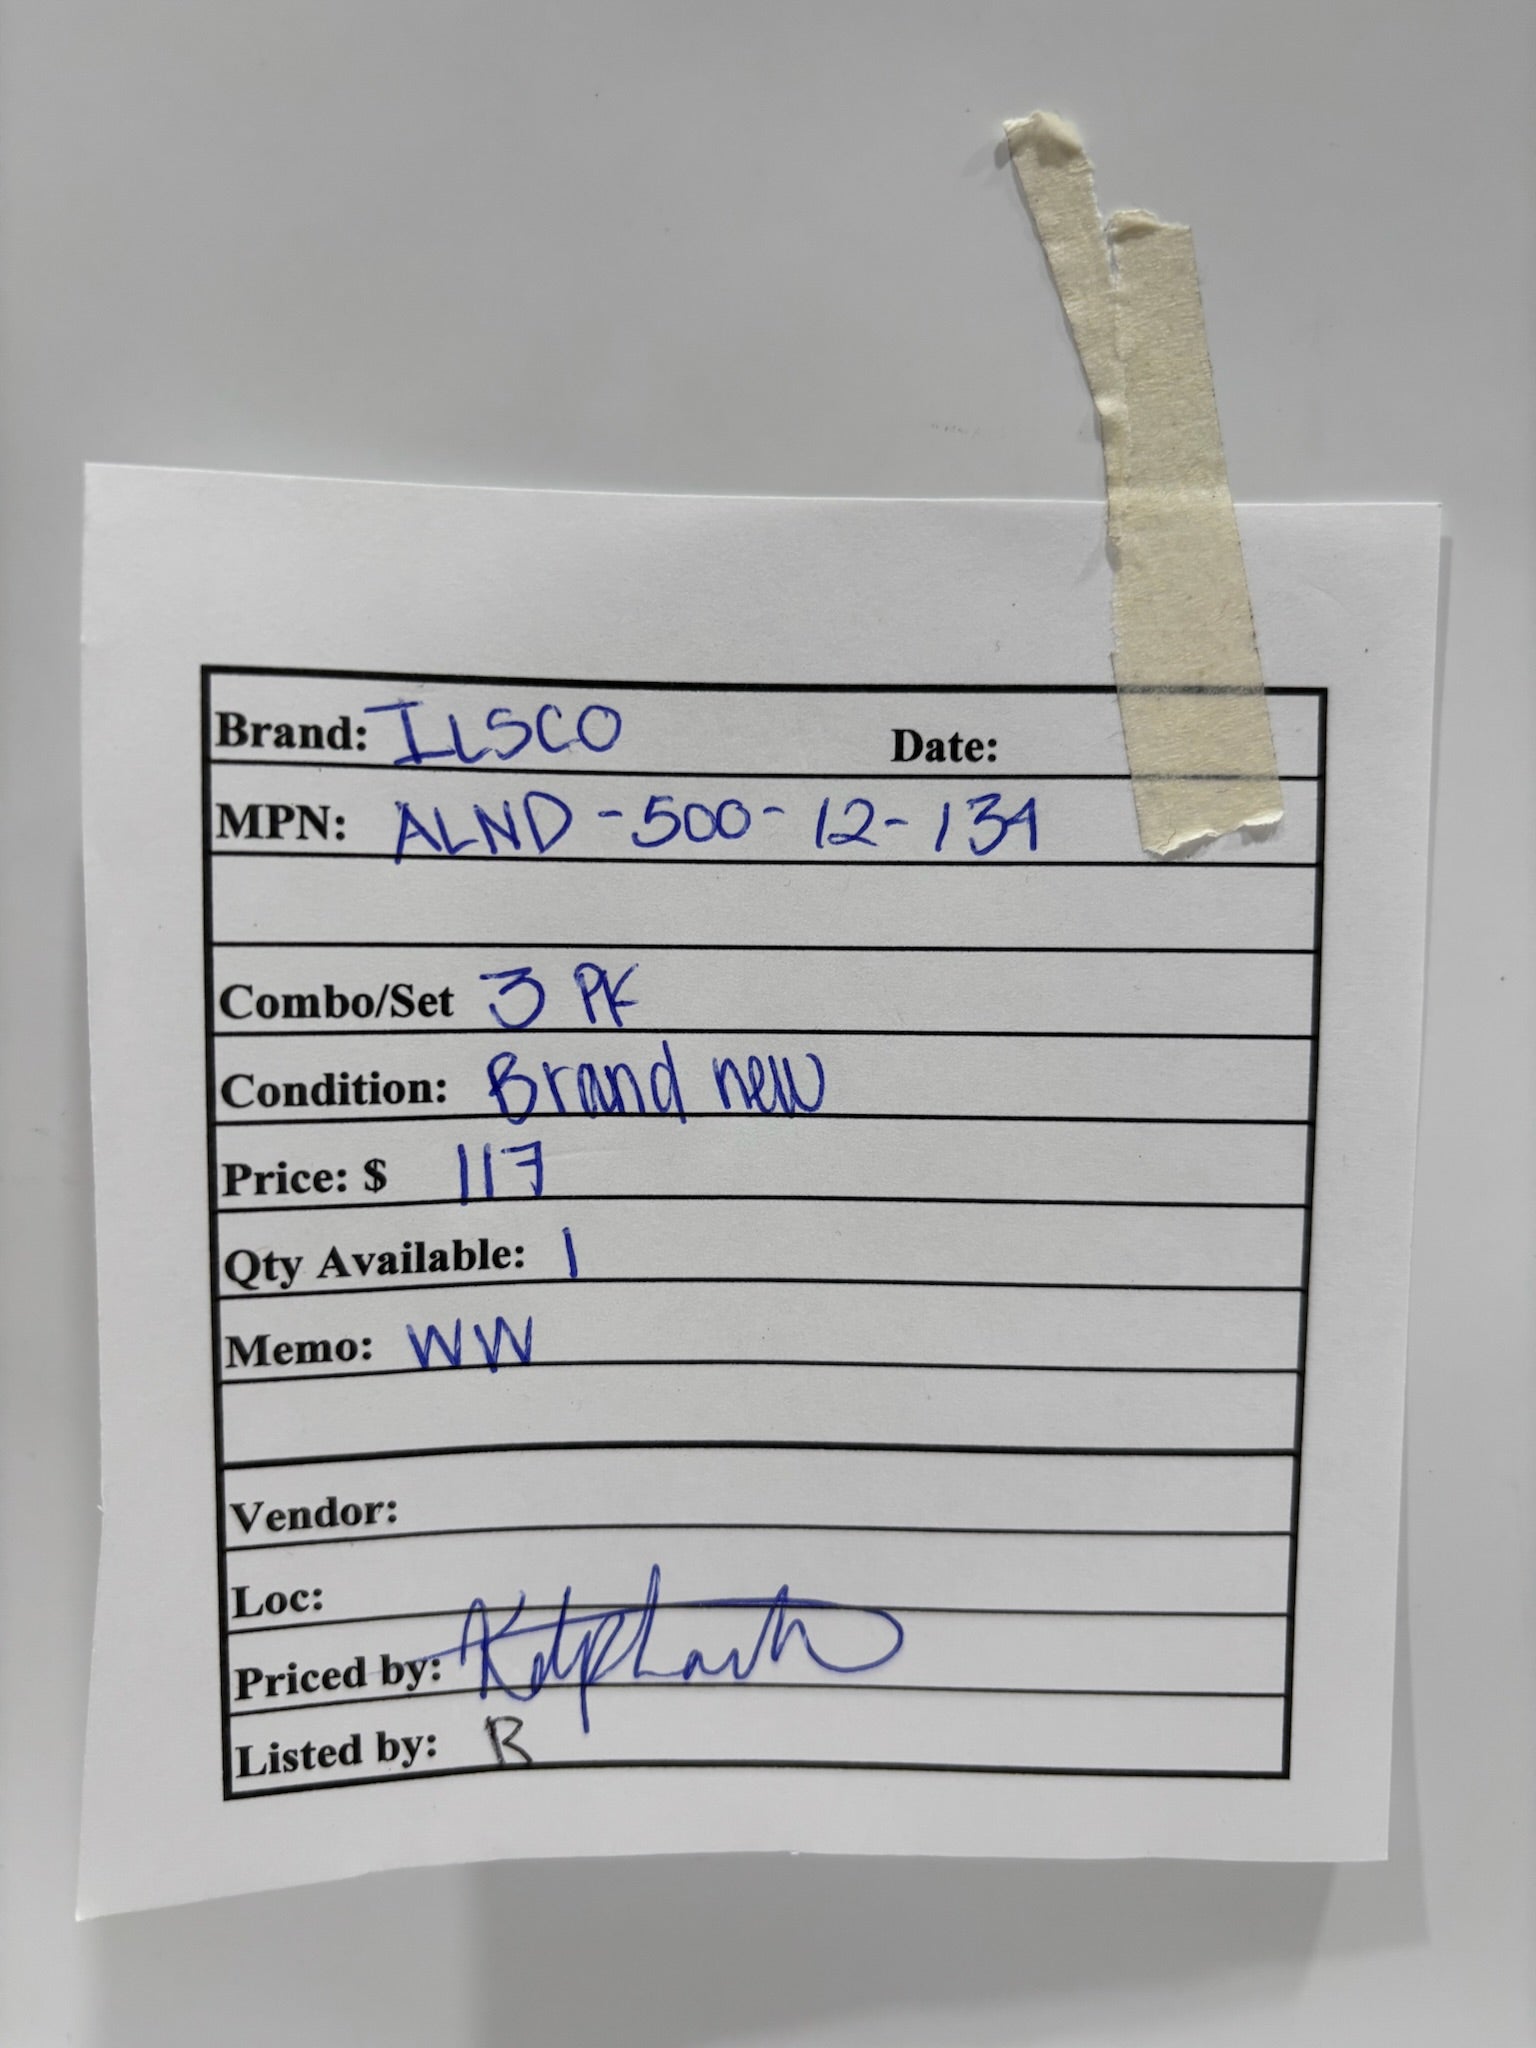 Brand: ILSCO Date:
MPN: ALND-500-12-134
Combo/Set 3 PK
Condition: Brand new
Price: $ 117
Qty Available: 1
Memo: WW
Vendor:
Loc:
Priced by:
Listed by: R